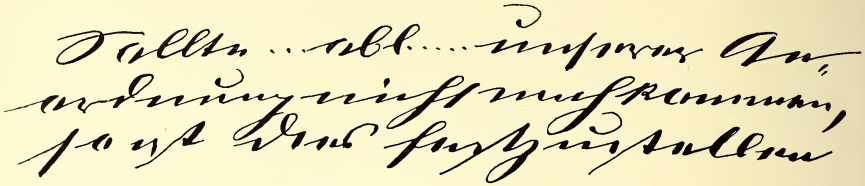 Sollte ... abl..... unserer An-
ordnung nicht nachkommen,
so ist dies festzustellen